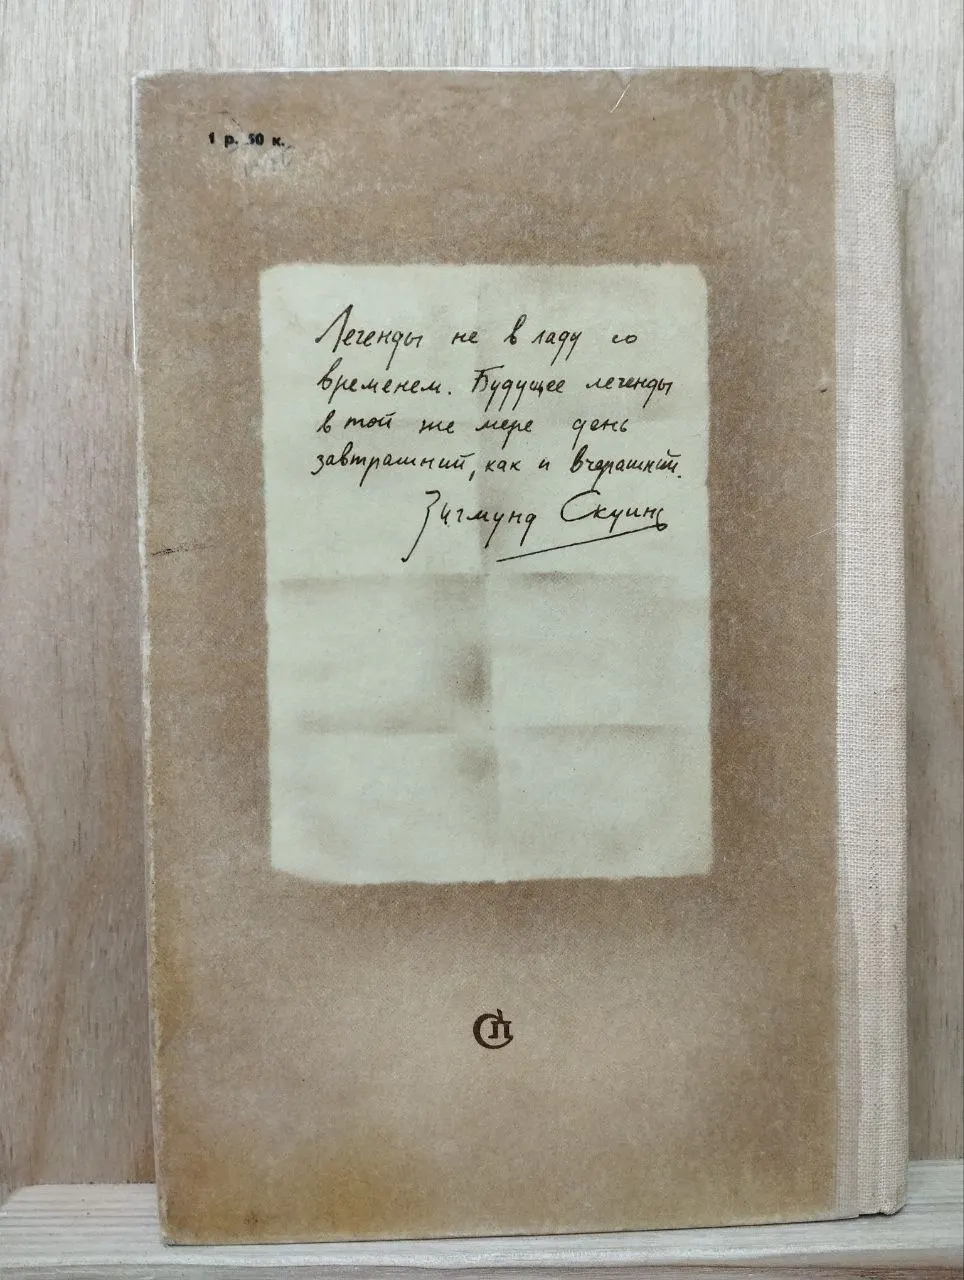 1 р. 50 к.
Легенды не в ладу со
временем. Будущее легенды
в той же мере день
завтрашний, как и вчерашний.
Зигмунд Скуинь
СП